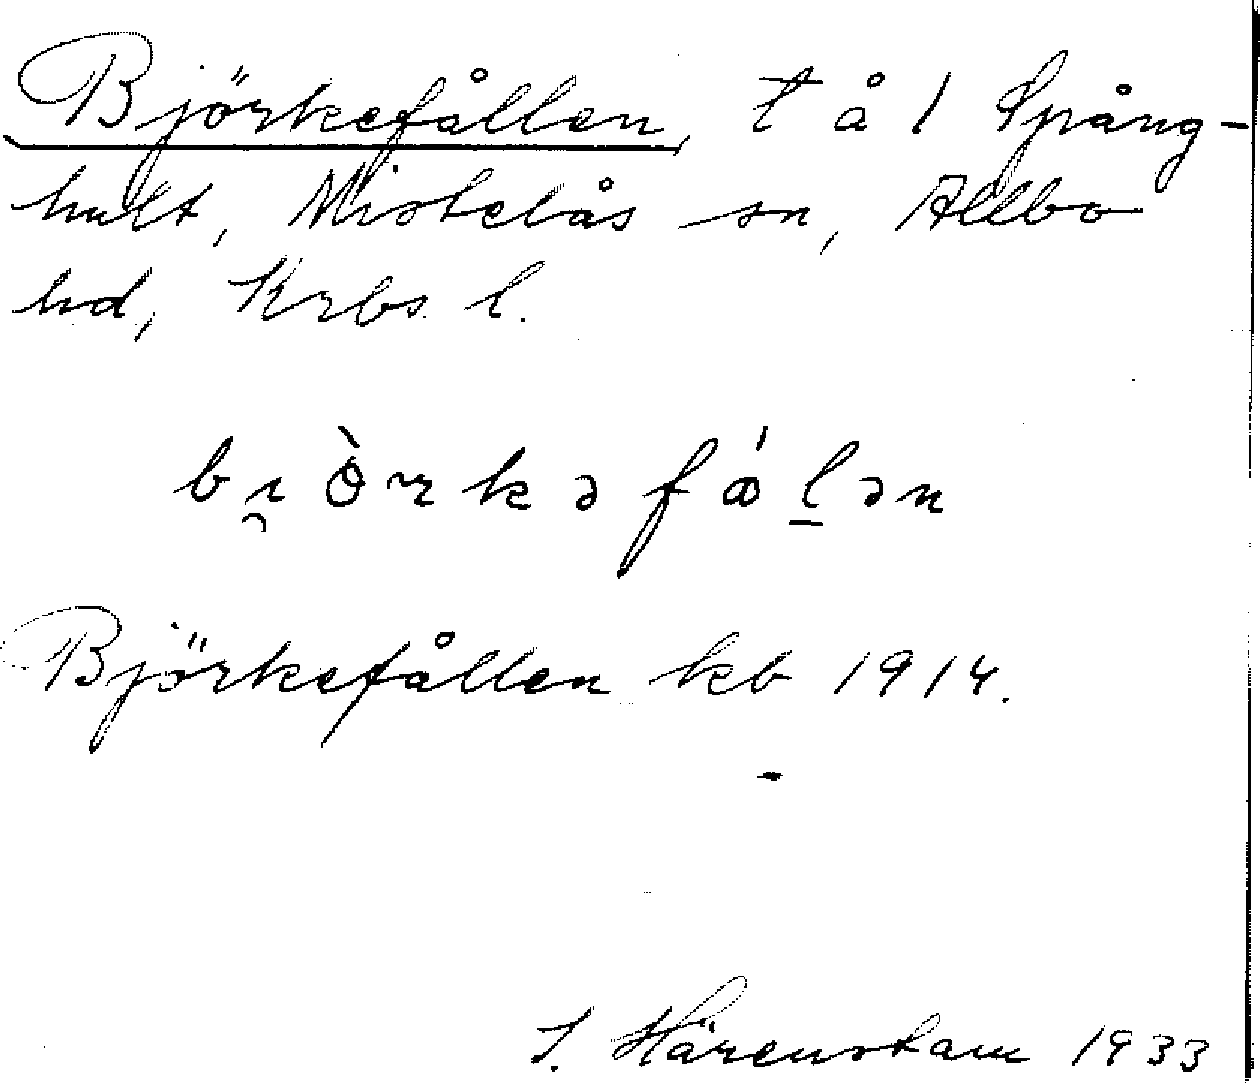 Björkefållen, t å 1 Spång-
hult, Mistelås sn, Allbo
hd, Krbs. l.
bı̯òrkəfǻl̠ən
Björkefållen kb 1914.
S. Härenstam 1933